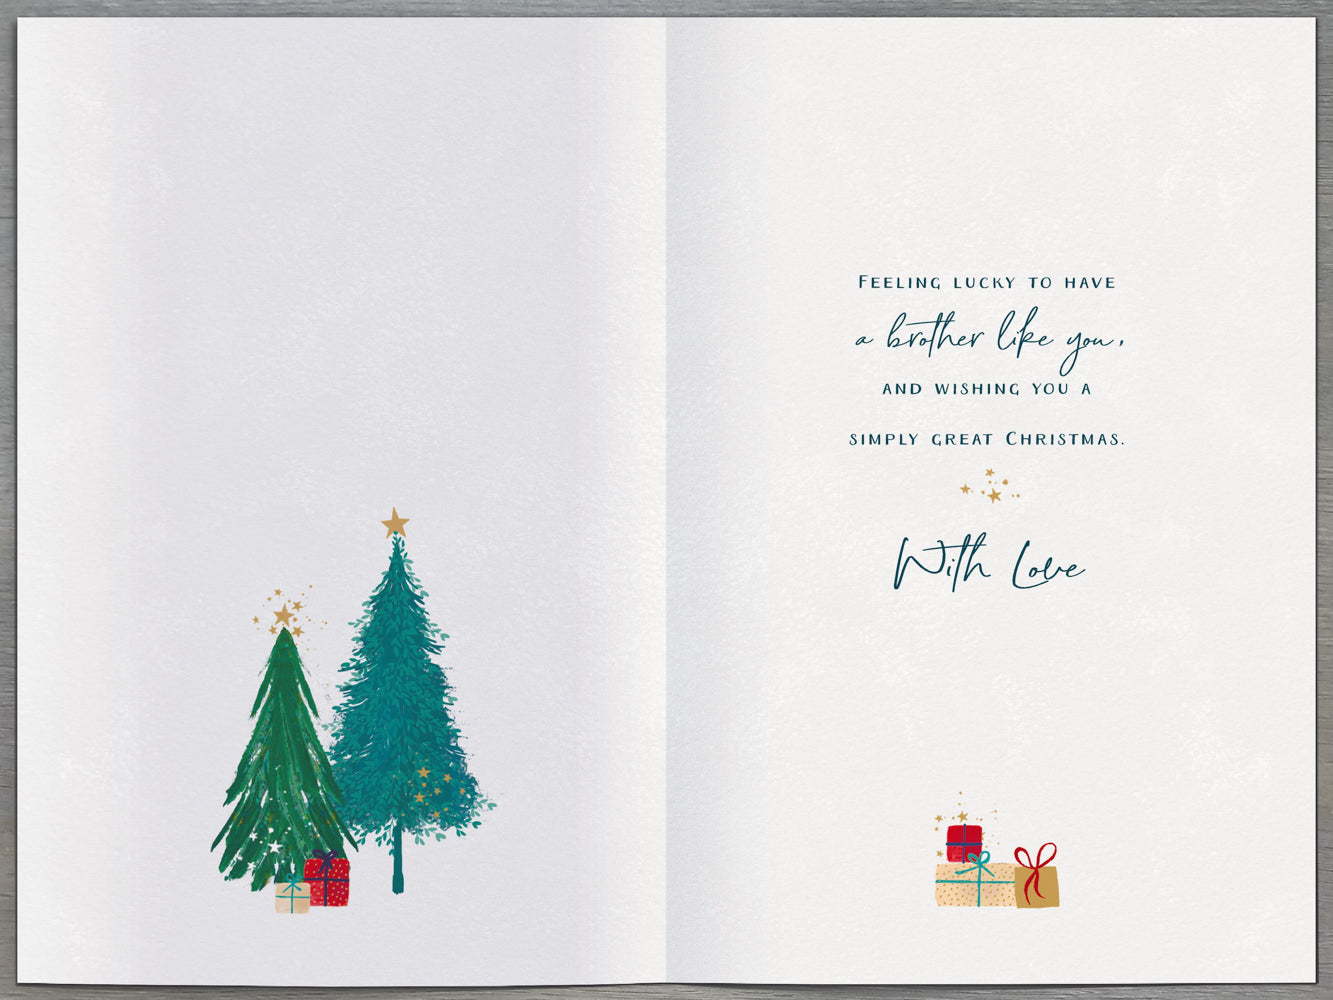 Feeling lucky to have
a brother like you,
and wishing you a
simply great Christmas.
With Love